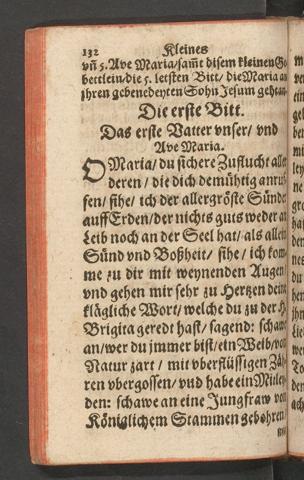 132 Kleines
vñ 5. Ave Maria/ sam̃t disem kleinen Ge
bettlein/ die 5. letsten Bitt/ die Maria an
jhren gebenedeyten Sohn Jesum gethan.
Die erste Bitt.
Das erste Vatter vnser/ vnd
Ave Maria.
O Maria/ du sichere Zuflucht aller
deren/ die dich demühtig anruf-
fen/ sihe/ ich der allergröste Sünder
auff Erden/ der nichts guts weder an
Leib noch an der Seel hat/ als allein
Sünd vnd Boßheit/ sihe/ ich kom-
me zu dir mit weynenden Augen/
vnd gehen mir sehr zu Hertzen deine
klägliche Wort/ welche du zu der H.
Brigita geredt hast/ sagend: schawe
an/ wer du jmmer bist/ ein Weib/ von
Natur zart/ mit vberflüssigen Zä-
ren vbergossen/ vnd habe ein Mitley-
den: schawe an eine Jungfraw von
Königlichem Stammen gebohren/